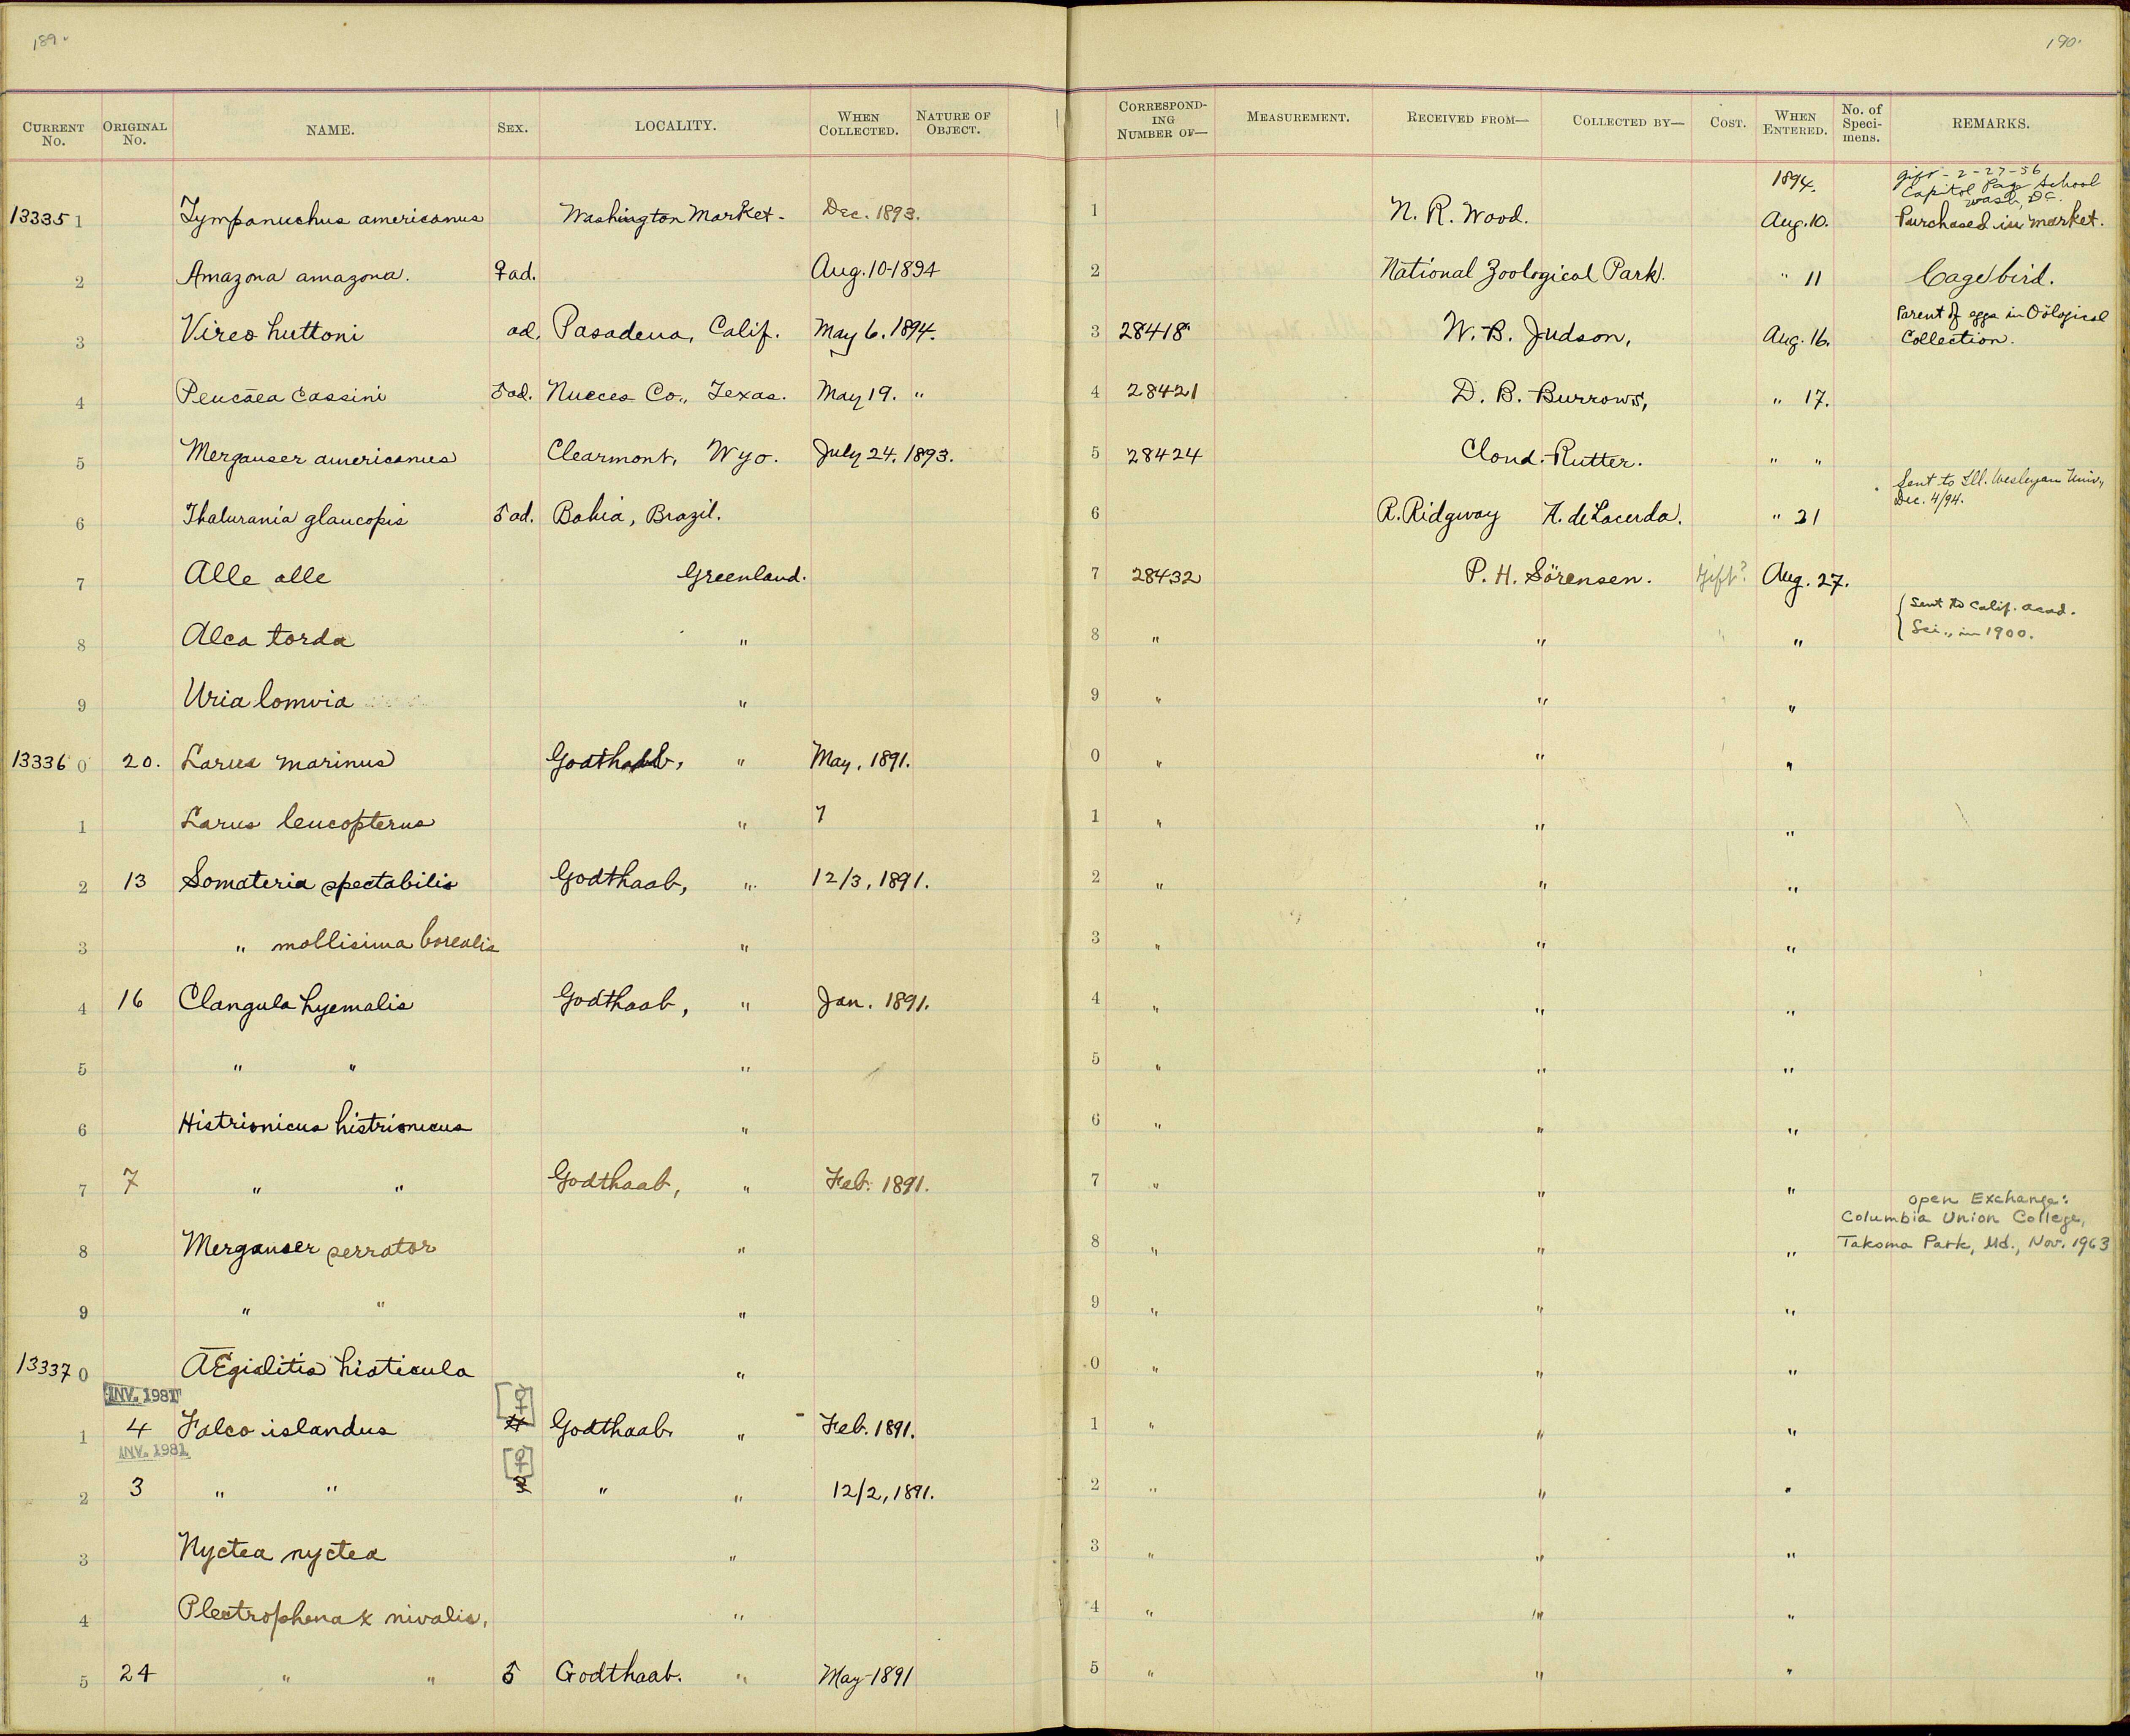 189.
190.
CURRENT No. ORIGINAL No. NAME. SEX. LOCALITY. WHEN COLLECTED. NATURE OF OBJECT. CORRESPONDING NUMBER OF— MEASUREMENT. RECEIVED FROM— COLLECTED BY— COST. WHEN ENTERED. No. of Specimens. REMARKS.
1894. gift - 2-27-56
Capitol Page School
Wash, DC.
13335 1 Tympanuchus americanus Washington Market. Dec. 1893. 1 N. R. Wood. Aug. 10. Purchased in market.
2 Amazona amazona. ♀ ad. Aug. 10-1894 2 National Zoological Park. " 11 Cage bird.
Parent of eggs in Oölogical
3 Vireo huttoni ad. Pasadena, Calif. May 6. 1894. 3 28418 W. B. Judson, Aug. 16. Collection.
4 Peucaea cassini ♂ ad. Nueces Co., Texas. May 19. " 4 28421 D. B. Burrows, " 17.
5 Merganser americanus Clearmont, Wyo. July 24. 1893. 5 28424 Cloud. Rutter. " "
Sent to Ill. Wesleyan Univ.,
Dec. 4/94.
6 Thalurania glaucopis ♂ ad. Bahia, Brazil. 6 R. Ridgway A. de Lacerda. " 21
7 Alle alle Greenland. 7 28432 P. H. Sörensen. Gift? Aug. 27.
{ Sent to Calif. Acad.
8 Alca torda " 8 " " " " { Sci., in 1900.
9 Uria lomvia " 9 " " "
13336 0 20. Larus marinus Godthaab, " May, 1891. 0 " " "
1 Larus leucopterus " 7 1 " " "
2 13 Somateria spectabilis Godthaab, " 12/3, 1891. 2 " " "
3 " mollisima borealis " 3 " " "
4 16 Clangula hyemalis Godthaab, " Jan. 1891. 4 " " "
5 " " " 5 " " "
6 Histrionicus histrionicus " 6 " " "
7 7 " " Godthaab, " Feb. 1891. 7 " " "
open Exchange:
Columbia Union College,
8 Merganser serrator " 8 " " " Takoma Park, Md., Nov. 1963
9 " " " 9 " " "
13337 0 Ægialitis hiaticula " 0 " " "
INV. 1981 [♀]
1 4 Falco islandus 4 Godthaab. " Feb. 1891. 1 " " "
INV. 1981 [♀]
2 3 " " 3 " " 12/2, 1891. 2 " " "
3 Nyctea nyctea " 3 " " "
4 Plectrophenax nivalis, " 4 " " "
5 24 " " ♂ Godthaab. " May-1891 5 " " "